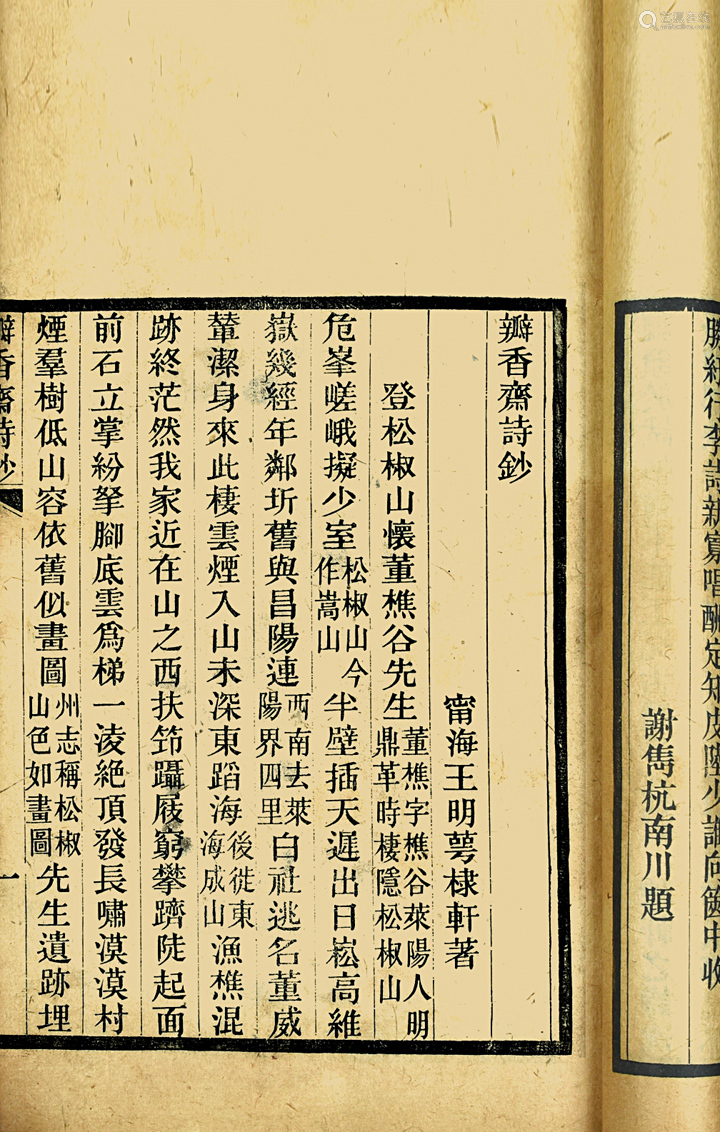 謝雋杭南川題
瓣香齋詩鈔
甯海王明萼棣軒著
登松椒山懷董樵谷先生董樵字樵谷萊陽人明鼎革時棲隱松椒山
危峯嵯峨擬少室松椒山今作嵩山半壁插天遲出日崧高維
嶽幾經年鄰圻舊與昌陽連西南去萊陽界四里白社逃名董威
輦潔身來此棲雲煙入山未深東蹈海後徙東海成山漁樵混
跡終茫然我家近在山之西扶筇躡屐窮攀躋陡起面
前石立掌紛拏腳底雲爲梯一淩絶頂發長嘯漠漠村
煙羣樹低山容依舊似畫圖州志稱松椒山色如畫圖先生遺跡埋
瓣香齋詩鈔
一